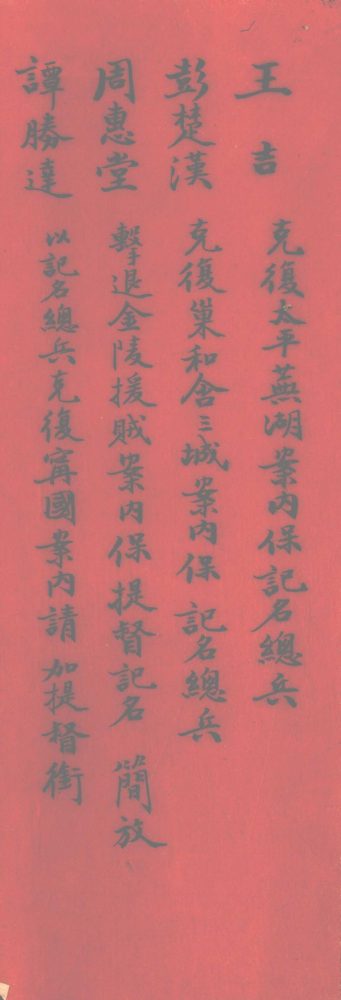 王吉 克復太平蕪湖案內保記名總兵
彭楚漢 克復巢和含三城案內保記名總兵
周惠堂 擊退金陵援賊案內保提督記名簡放
譚勝達 以記名總兵克復寗國案內請加提督銜